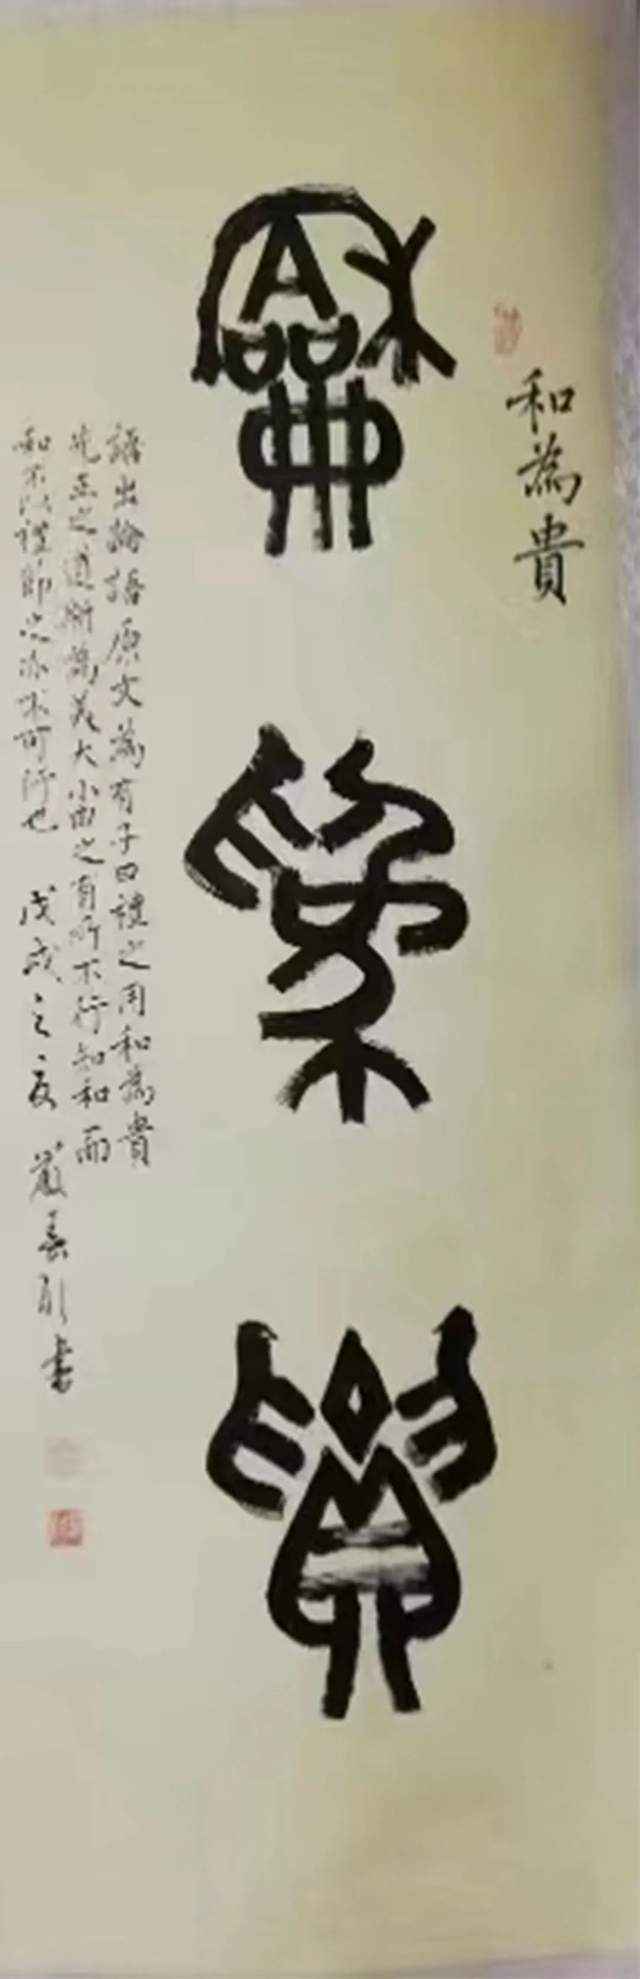 和為貴
龢為貴
語出論語原文為有子曰禮之用和為貴
先王之道斯為美大小由之有所不行知和而
和不以禮節之亦不可行也 戊戌之夏 嚴 書